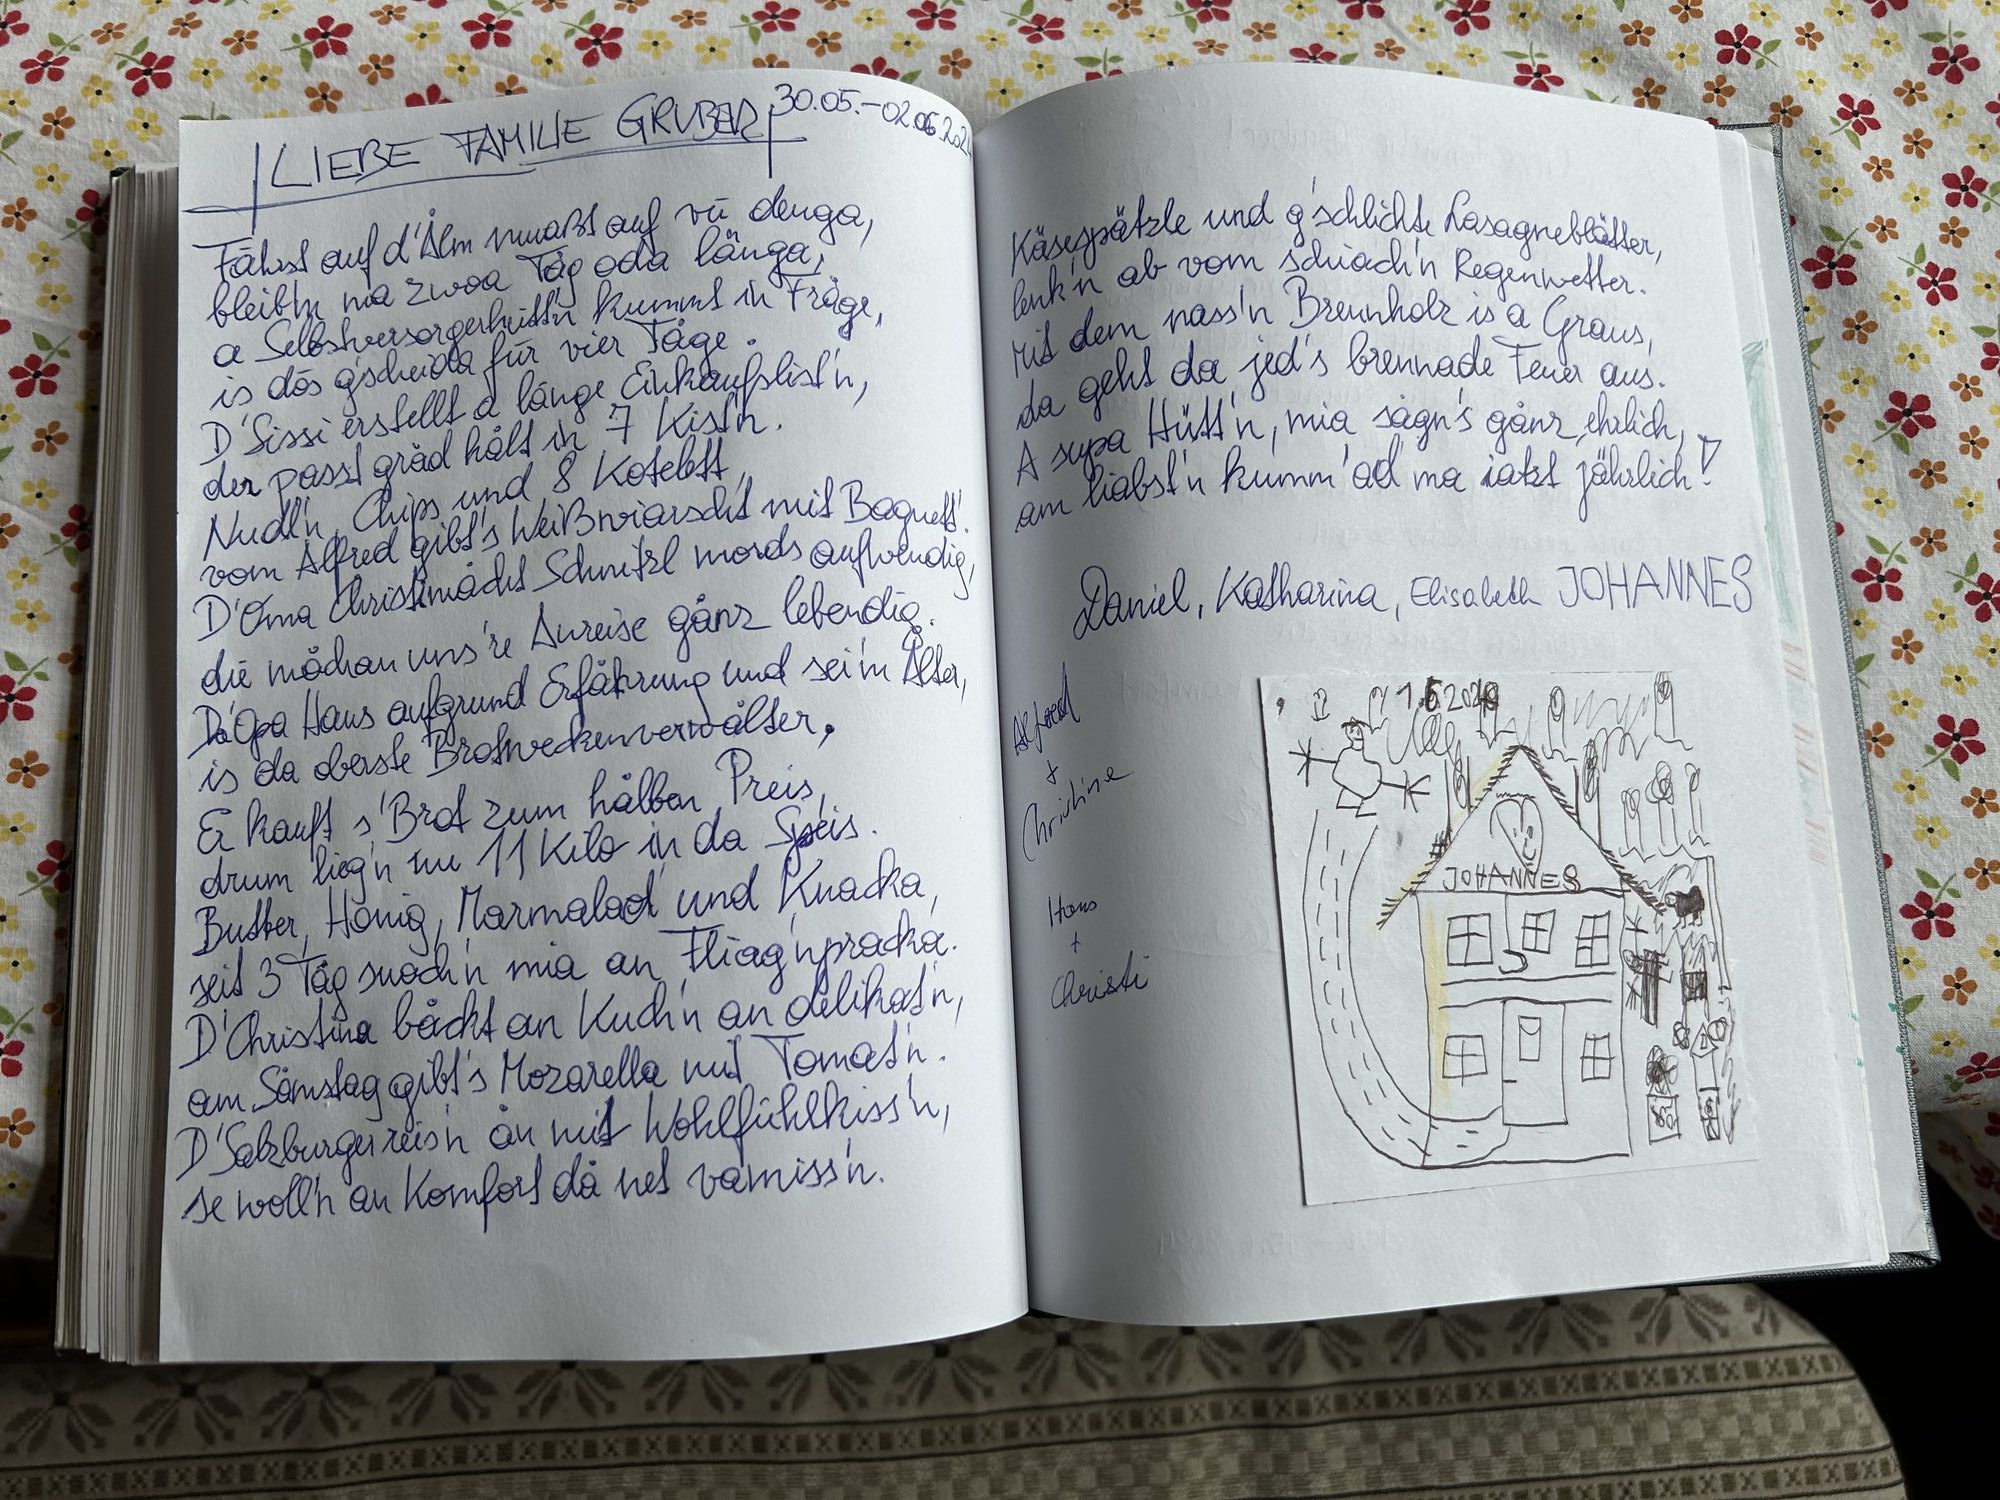 LIEBE FAMILIE GRUBER
30.05.-02.06.202
Fåhrst auf d'Ålm muaßt auf vü denga,
bleib'n ma zwoa Tåg oda länga,
a Selbstversorgerhütt'n kummt in Fråge,
is dås g'scheida für vier Tåge.
D'Sissi erstellt a långe Einkaufslist'n,
der passt gråd hålt in 7 Kist'n.
Nudl'n, Chips und 8 Kotelett,
vom Alfred gibt's Weißwiarscht mit Baguett'.
D'Oma Christi måcht Schnitzl mords aufwendig,
die måchan uns're Anreise gånz lebendig.
Da Opa Hans aufgrund Erfåhrung und sei'm Ålter,
is da oberste Brotweckenverwålter.
Er kauft s'Brot zum hålben Preis,
drum lieg'n nu 11 Kilo in da Speis.
Butter, Honig, Marmelad' und Knacka,
seit 3 Tåg suach'n mia an Fliag'npracka.
D'Christina båckt an Kuch'n an delikat'n,
am Såmstag gibt's Mozarella mit Tomat'n.
D'Salzburger reis'n ån mit Wohlfühlkiss'n,
se woll'n an Komfort då net vamiss'n.
Käsespätzle und g'schlichte Lasagneblätter,
lenk'n ab vom schiach'n Regenwetter.
Mit dem nass'n Brennholz is a Graus,
da geht da jed's brennade Feuer aus.
A supa Hütt'n, mia sågn's gånz ehrlich,
am liabst'n kumm'ad ma iatzt jährlich!
Daniel, Katharina, Elisabeth JOHANNES
Alfred
+
Christine
Hans
+
Christi
JOHANNES